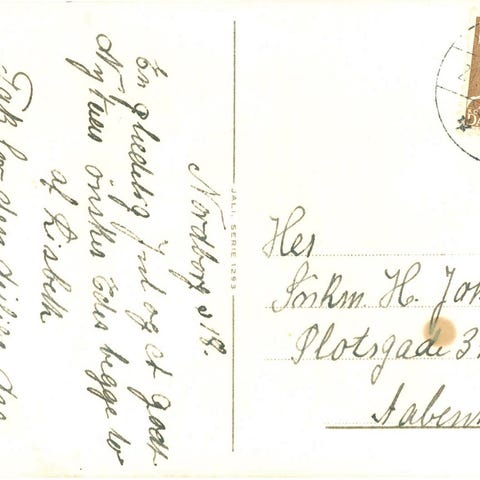 Nordborg d 18.
En glædelig Jul og et godt
Nytaar önsker Eder begge to
af Lisbeth
Tak for den
JALI, SERIE 1293
Her
H.
Plotsgade 3
Aaben